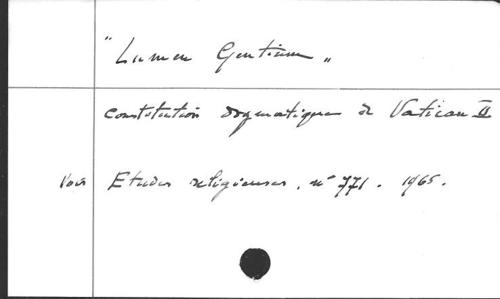 "Lumen Gentium"
Constitution dogmatique de Vatican II
Voir Etudes religieuses, n° 771. 1965.